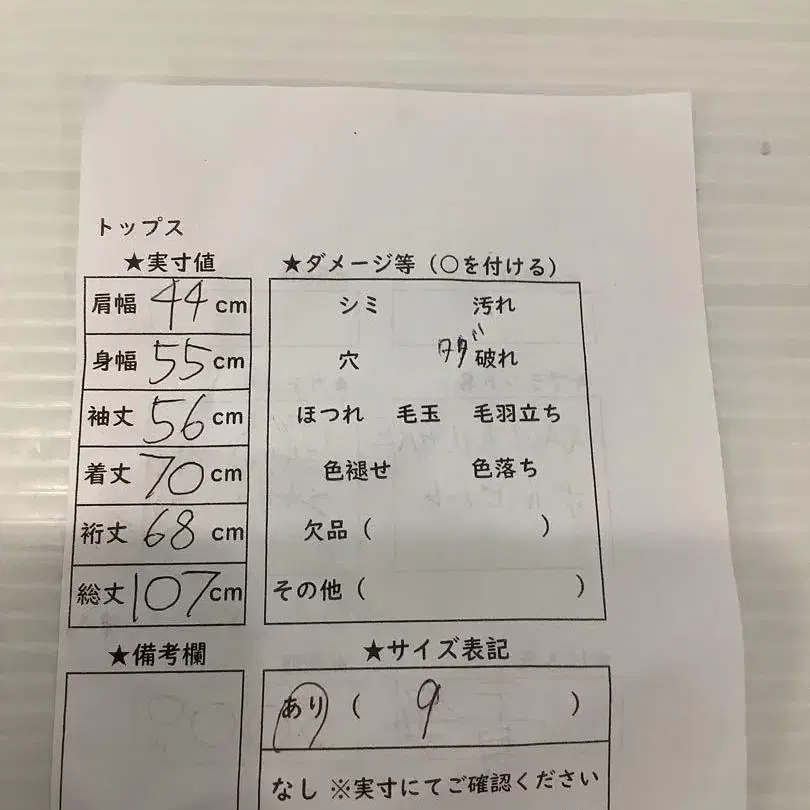 トップス
★実寸値
肩幅 44 cm
身幅 55 cm
袖丈 56 cm
着丈 70 cm
裄丈 68 cm
総丈 107 cm
★ダメージ等（○を付ける）
シミ 汚れ
穴 タグ 破れ
ほつれ 毛玉 毛羽立ち
色褪せ 色落ち
欠品（ ）
その他（ ）
★備考欄
★サイズ表記
あり（ 9 ）
なし ※実寸にてご確認ください